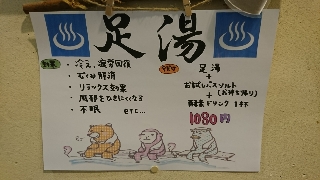 足湯
効果
・冷え、疲労回復
・むくみ解消
・リラックス効果
・風邪をひきにくくなる
・不眠
etc...
足湯
+
お試しバスソルト
(お持ち帰り)
+
酵素ドリンク 1杯
1080円